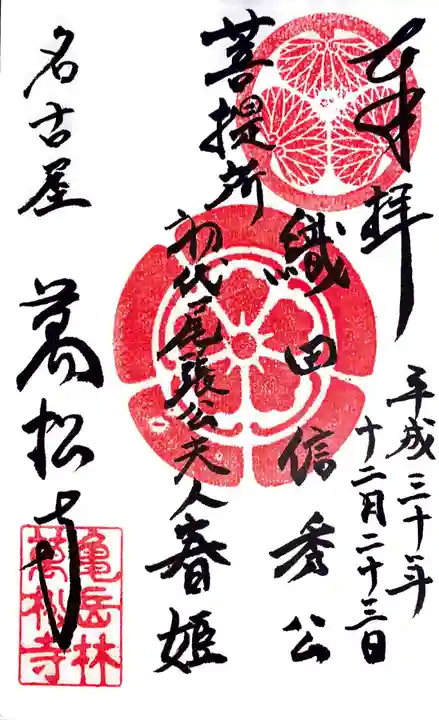 奉拝
平成三十年
十二月二十三日
織田信秀公
菩提所
初代尾張公夫人春姫
名古屋
萬松寺
亀岳林
萬松寺